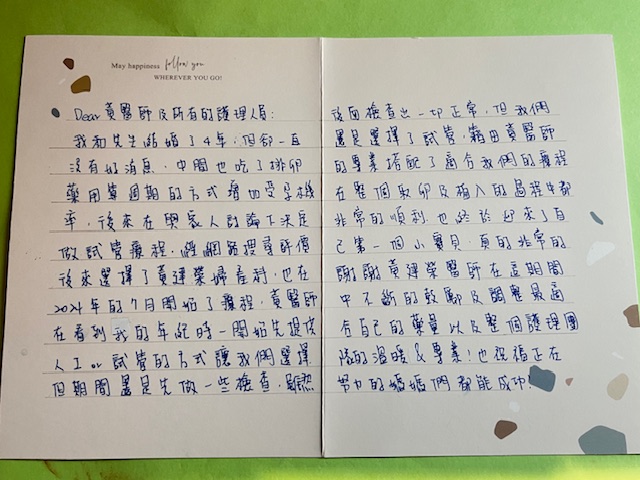 May happiness follow you
WHEREVER YOU GO!
Dear 黃醫師及所有的護理人員:
我和先生結婚了4年,但卻一直
沒有好消息,中間也吃了排卵
藥用算週期的方式增加受孕機
率,後來在與家人討論下決定
做試管療程,經網路搜尋評價
後來選擇了黃建榮婦產科,也在
2024年的7月開始了療程,黃醫師
在看到我的年紀時一開始先提供
人工or試管的方式讓我們選擇
但期間還是先做一些檢查,雖然
後面檢查出一切正常,但我們
還是選擇了試管,藉由黃醫師
的專業搭配了適合我們的療程
在整個取卵及植入的過程中都
非常的順利也終於迎來了自
己第一個小寶貝,真的非常的
謝謝黃建榮醫師在這期間
中不斷的鼓勵及調整最適
合自己的藥量以及整個護理團
隊的溫暖&專業!也祝福正在
努力的媽媽們都能成功!